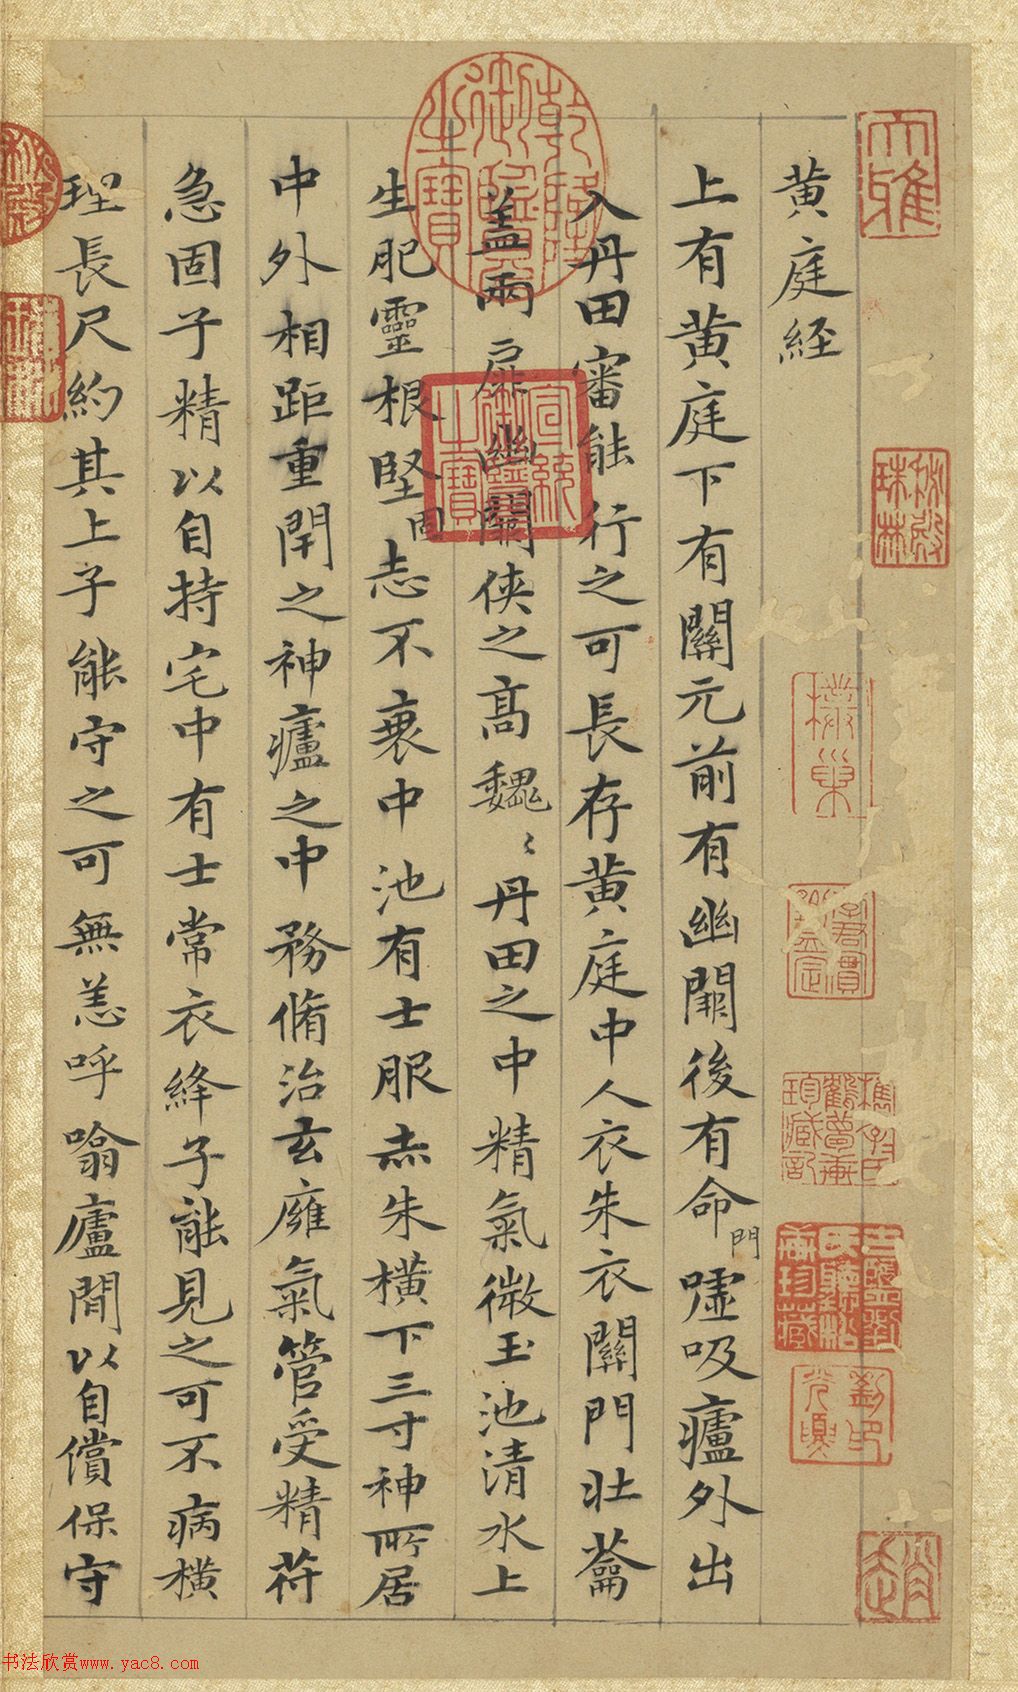 黄庭経
上有黄庭下有關元前有幽闕後有命門嘘吸廬外出
入丹田審能行之可長存黄庭中人衣朱衣關門壯蘥
蓋兩扉幽闕俠之高魏〻丹田之中精氣微玉池清水上
生肥靈根堅固志不衰中池有士服赤朱横下三寸神所居
中外相距重閇之神廬之中務脩治玄廱氣管受精苻
急固子精以自持宅中有士常衣絳子能見之可不病横
理長尺約其上子能守之可無恙呼噏廬間以自償保守
乾隆御覽之寶
宣統御覽之寶
大雅
秘殿珠林
書法欣赏www.yac8.com